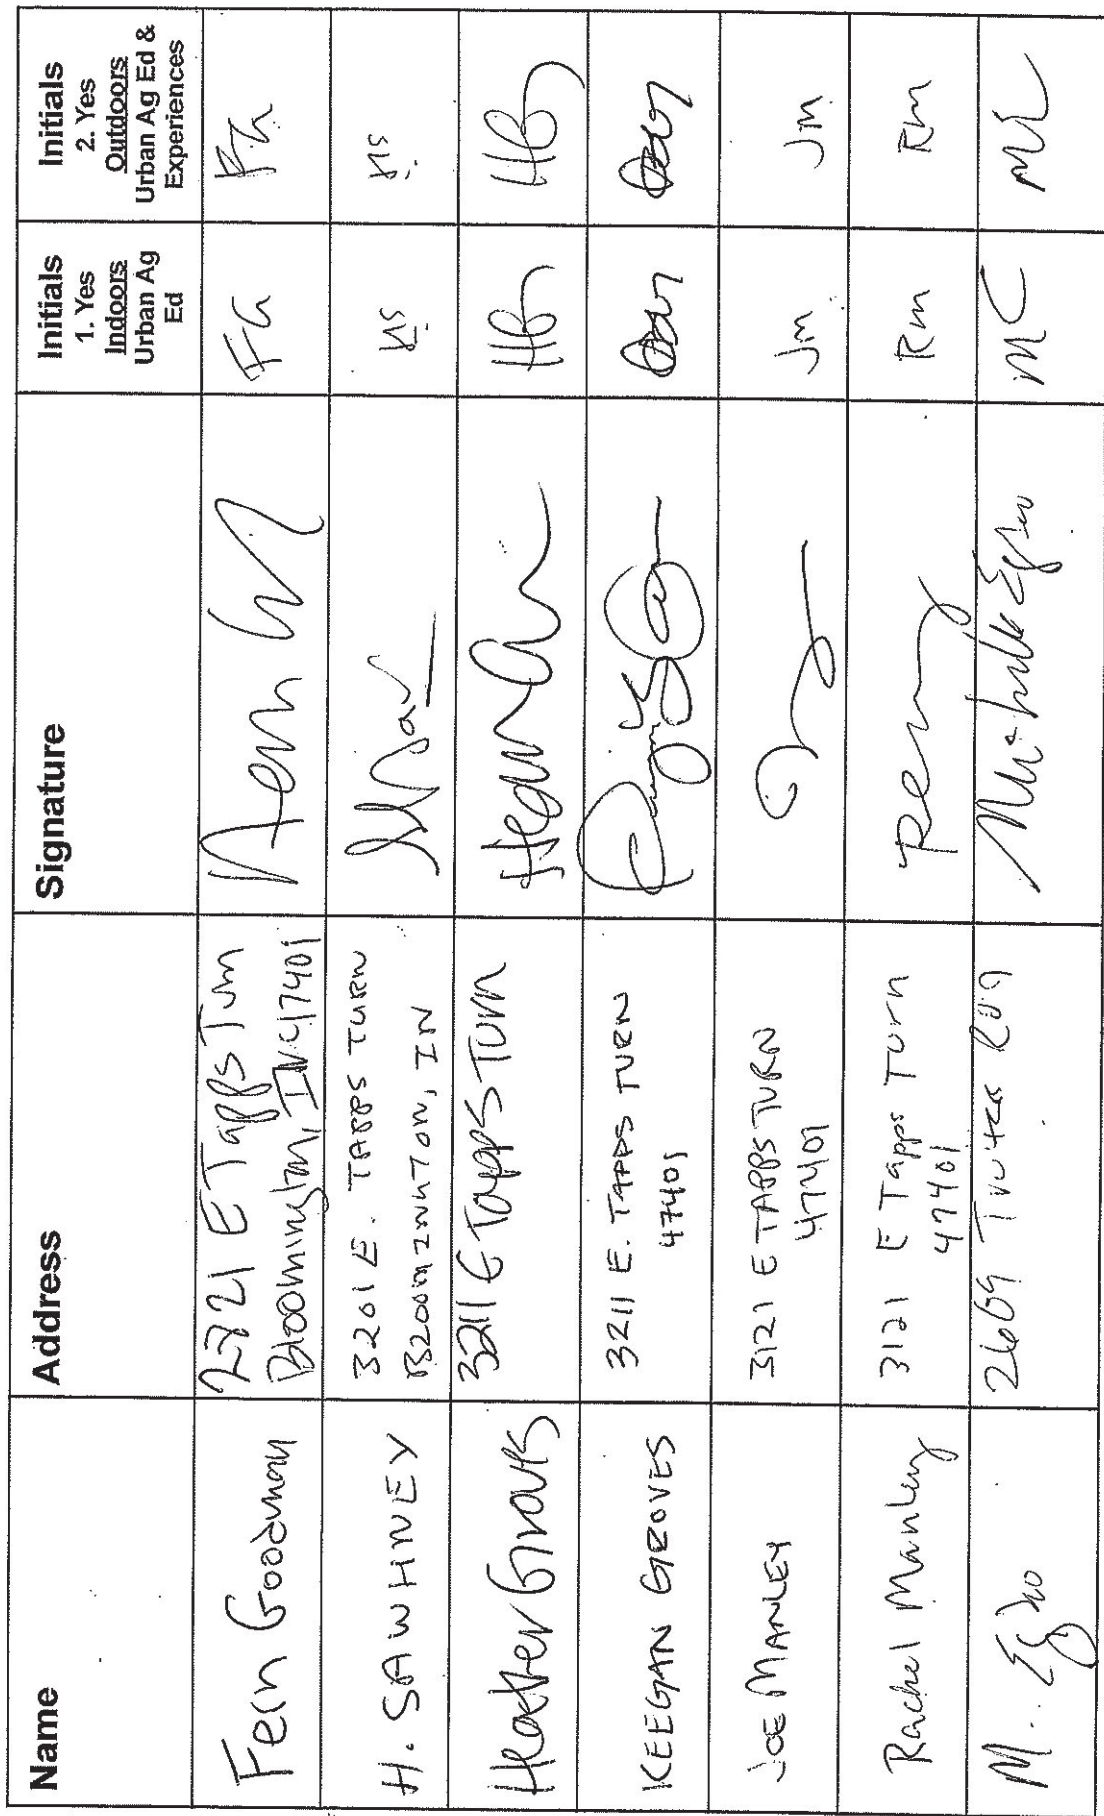 Name
Address
Signature
Initials
1. Yes
Indoors
Urban Ag
Ed
Initials
2. Yes
Outdoors
Urban Ag Ed &
Experiences
Fern Goodman
2721 E Tapps Turn
Bloomington, IN 47401
FG
FG
H. SAWHNEY
3201 E. TAPPS TURN
BLOOMINGTON, IN
HS
HS
Heather Groves
3211 E Tapps Turn
HG
HG
KEEGAN GROVES
3211 E. TAPPS TURN
47401
JOE MANLEY
3121 E TAPPS TURN
47401
Jm
Jm
Rachel Manley
3121 E Tapps Turn
47401
Rm
Rm
M.
2669